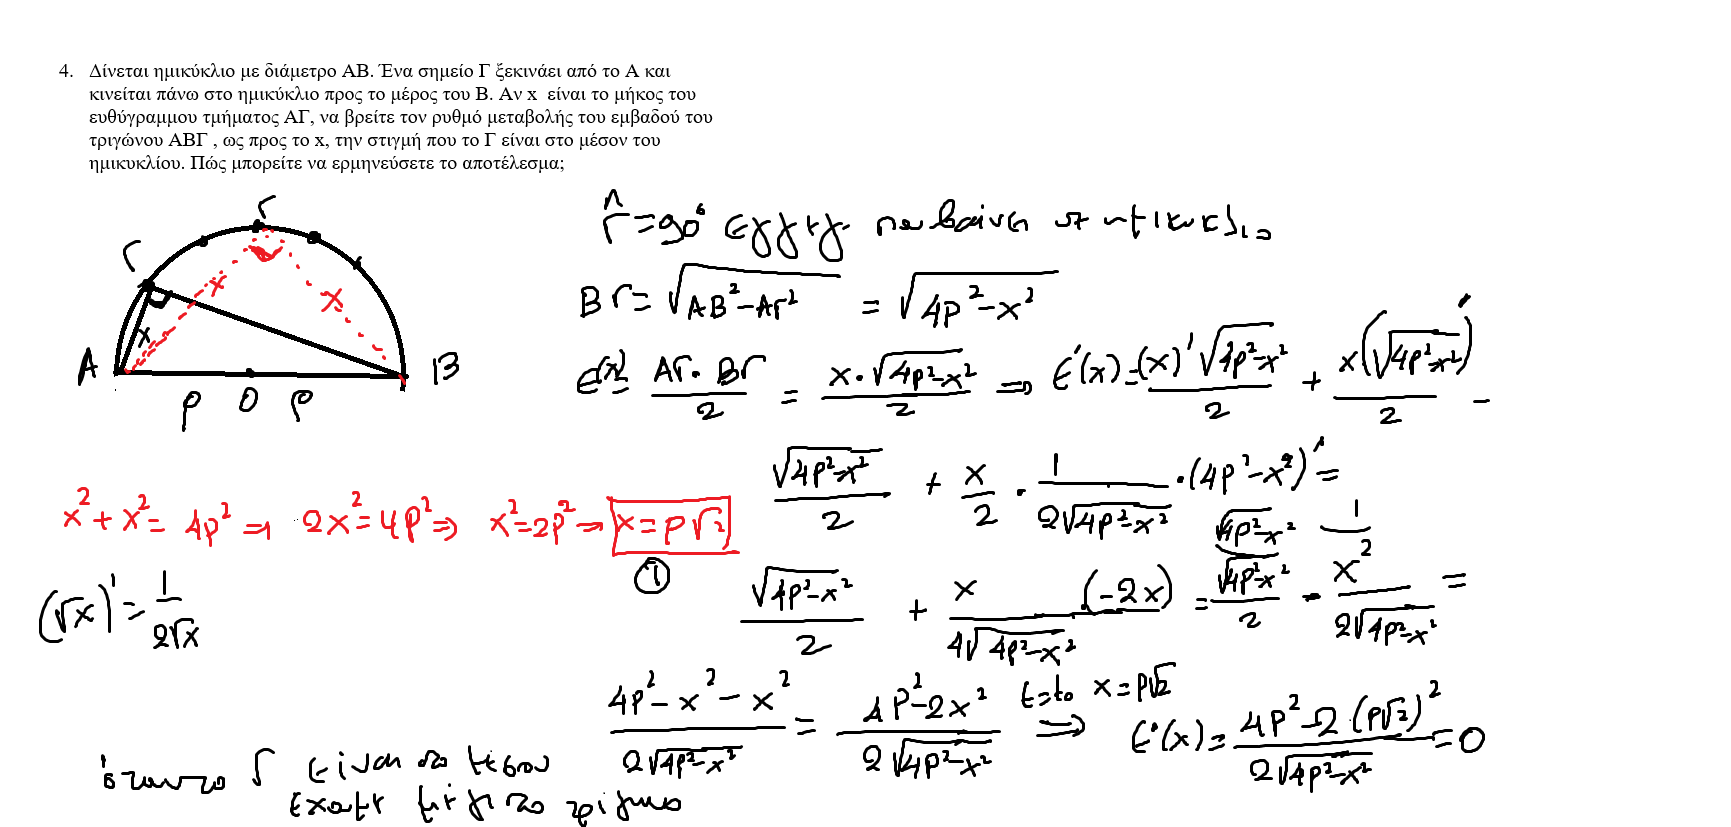 4. Δίνεται ημικύκλιο με διάμετρο ΑΒ. Ένα σημείο Γ ξεκινάει από το Α και
κινείται πάνω στο ημικύκλιο προς το μέρος του Β. Αν x είναι το μήκος του
ευθύγραμμου τμήματος ΑΓ, να βρείτε τον ρυθμό μεταβολής του εμβαδού του
τριγώνου ΑΒΓ , ως προς το x, την στιγμή που το Γ είναι στο μέσον του
ημικυκλίου. Πώς μπορείτε να ερμηνεύσετε το αποτέλεσμα;
Γ
Γ
x x
x
A B
ρ O ρ
Γ̂=90° εγγεγρ. που βαίνει σε ημικυκλιο
ΒΓ= √(ΑΒ²-ΑΓ²) = √(4ρ²-x²)
Ε(x)= ΑΓ·ΒΓ/2 = x·√(4ρ²-x²)/2 ⇒ Ε'(x)=(x)'√(4ρ²-x²)/2 + x(√(4ρ²-x²))'/2 =
√(4ρ²-x²)/2 + x/2 · 1/(2√(4ρ²-x²)) ·(4ρ²-x²)'=
x²+x²=4ρ² ⇒ 2x²=4ρ² ⇒ x²=2ρ² ⇒ x=ρ√2
①
(√x)'=1/(2√x)
√(4ρ²-x²)/2 + x/(4√(4ρ²-x²)) (-2x) = √(4ρ²-x²)/2 - x²/(2√(4ρ²-x²)) =
√(4ρ²-x²) 1
(4ρ²-x²-x²)/(2√(4ρ²-x²)) = (4ρ²-2x²)/(2√(4ρ²-x²)) ⇒ x=ρ√2 Ε'(x)=(4ρ²-2(ρ√2)²)/(2√(4ρ²-x²))=0
όταν το Γ είναι το μέσου
έχουμε μέγιστο τρίγωνο